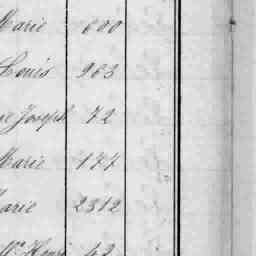 Marie 600
Louis 963
Joseph 72
Marie 177
Marie 2312
Henri 42